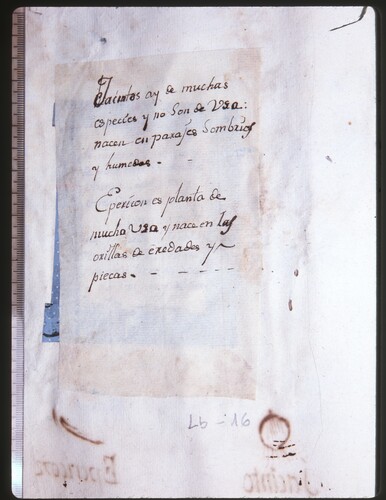 Jacintos ay de muchas
especies y no son de Vso:
nacen en paraxes sombrios
y humedos. -
Epericon es planta de
mucho Vso y nace en las
orillas de eredades y
piecas. - - - - - -
Lb - 16
Epericon
Jacinto